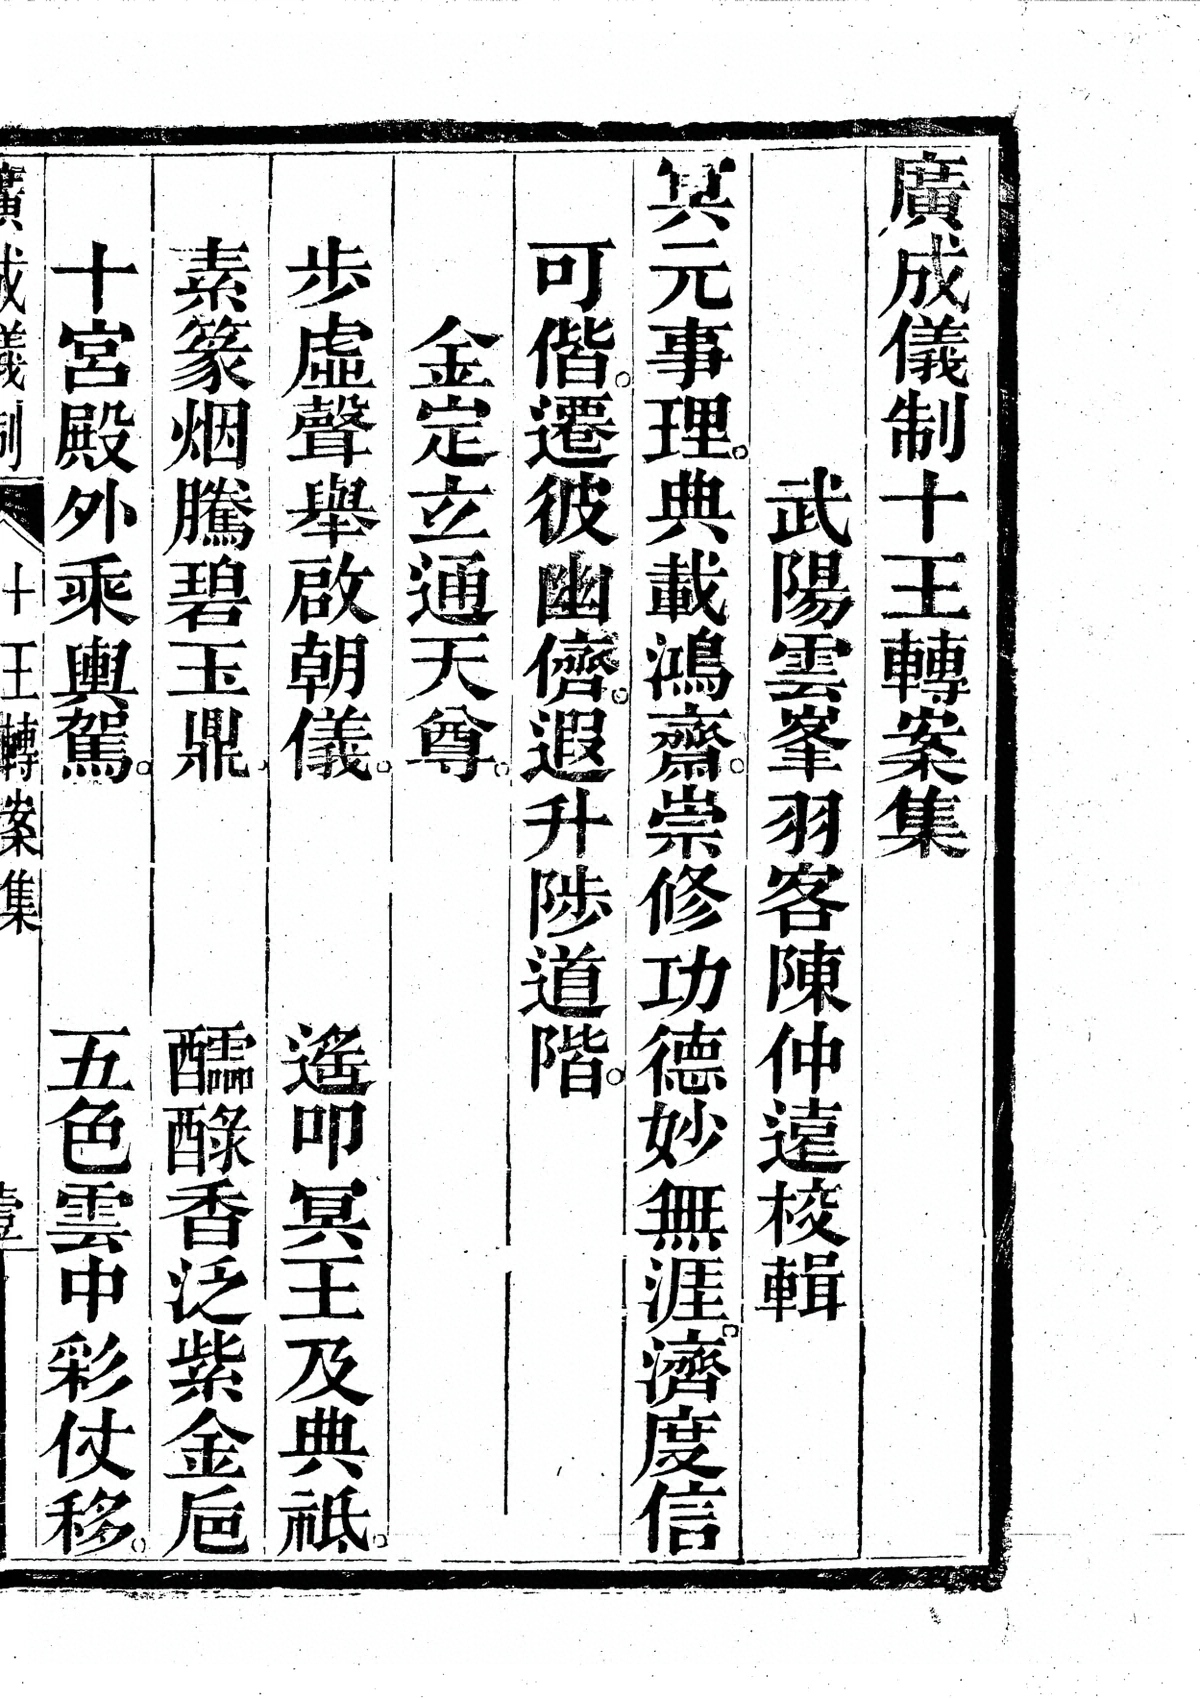 廣成儀制十王轉案集
武陽雲峯羽客陳仲遠校輯
冥元事理。典載鴻齋。崇修功德妙無涯。濟度信
可偕。遷彼幽儕。遐升陟道階。
金定立通天尊。
步虛聲舉啟朝儀。　遙叩冥王及典祇。
素篆烟騰碧玉鼎　醽醁香泛紫金巵
十宮殿外乘輿駕。　五色雲中彩仗移。
廣成儀制　十王轉案集　壹